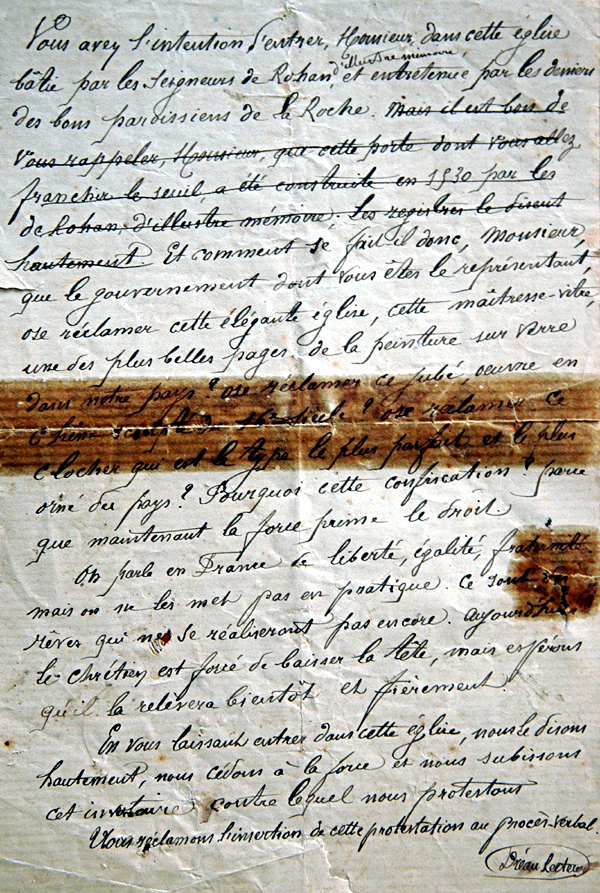 Vous avez l'intention d'entrer, Monsieur, dans cette église
d'illustre mémoire,
bâtie par les Seigneurs de Rohan et entretenue par les deniers
des bons paroissiens de la Roche. Mais il est bon de
vous rappeler, Monsieur, que cette porte dont vous allez
franchir le seuil, a été construite en 1530 par les
de Rohan, d'illustre mémoire. Les registres le disent
hautement. Et comment se fait il donc, Monsieur,
que le gouvernement dont vous êtes le représentant,
ose réclamer cette élégante église, cette maîtresse-vitre,
une des plus belles pages de la peinture sur verre
dans notre pays? ose réclamer ce jubé, oeuvre en
chêne sculpté du 16e siècle? ose réclamer ce
clocher qui est le type le plus parfait et le plus
orné du pays? Pourquoi cette confiscation? parce
que maintenant la force prime le droit.
On parle en France de liberté, égalité, fraternité
mais on ne les met pas en pratique. Ce sont des
rêves qui ne se réaliseront pas encore. Aujourd'hui
le chrétien est forcé de baisser la tête, mais espérons
qu'il la relèvera bientôt et fièrement.
En vous laissant entrer dans cette église, nous le disons
hautement, nous cédons à la force et nous subissons
cet inventaire contre lequel nous protestons
Nous réclamons l'insertion de cette protestation au procès-verbal.
Dréau